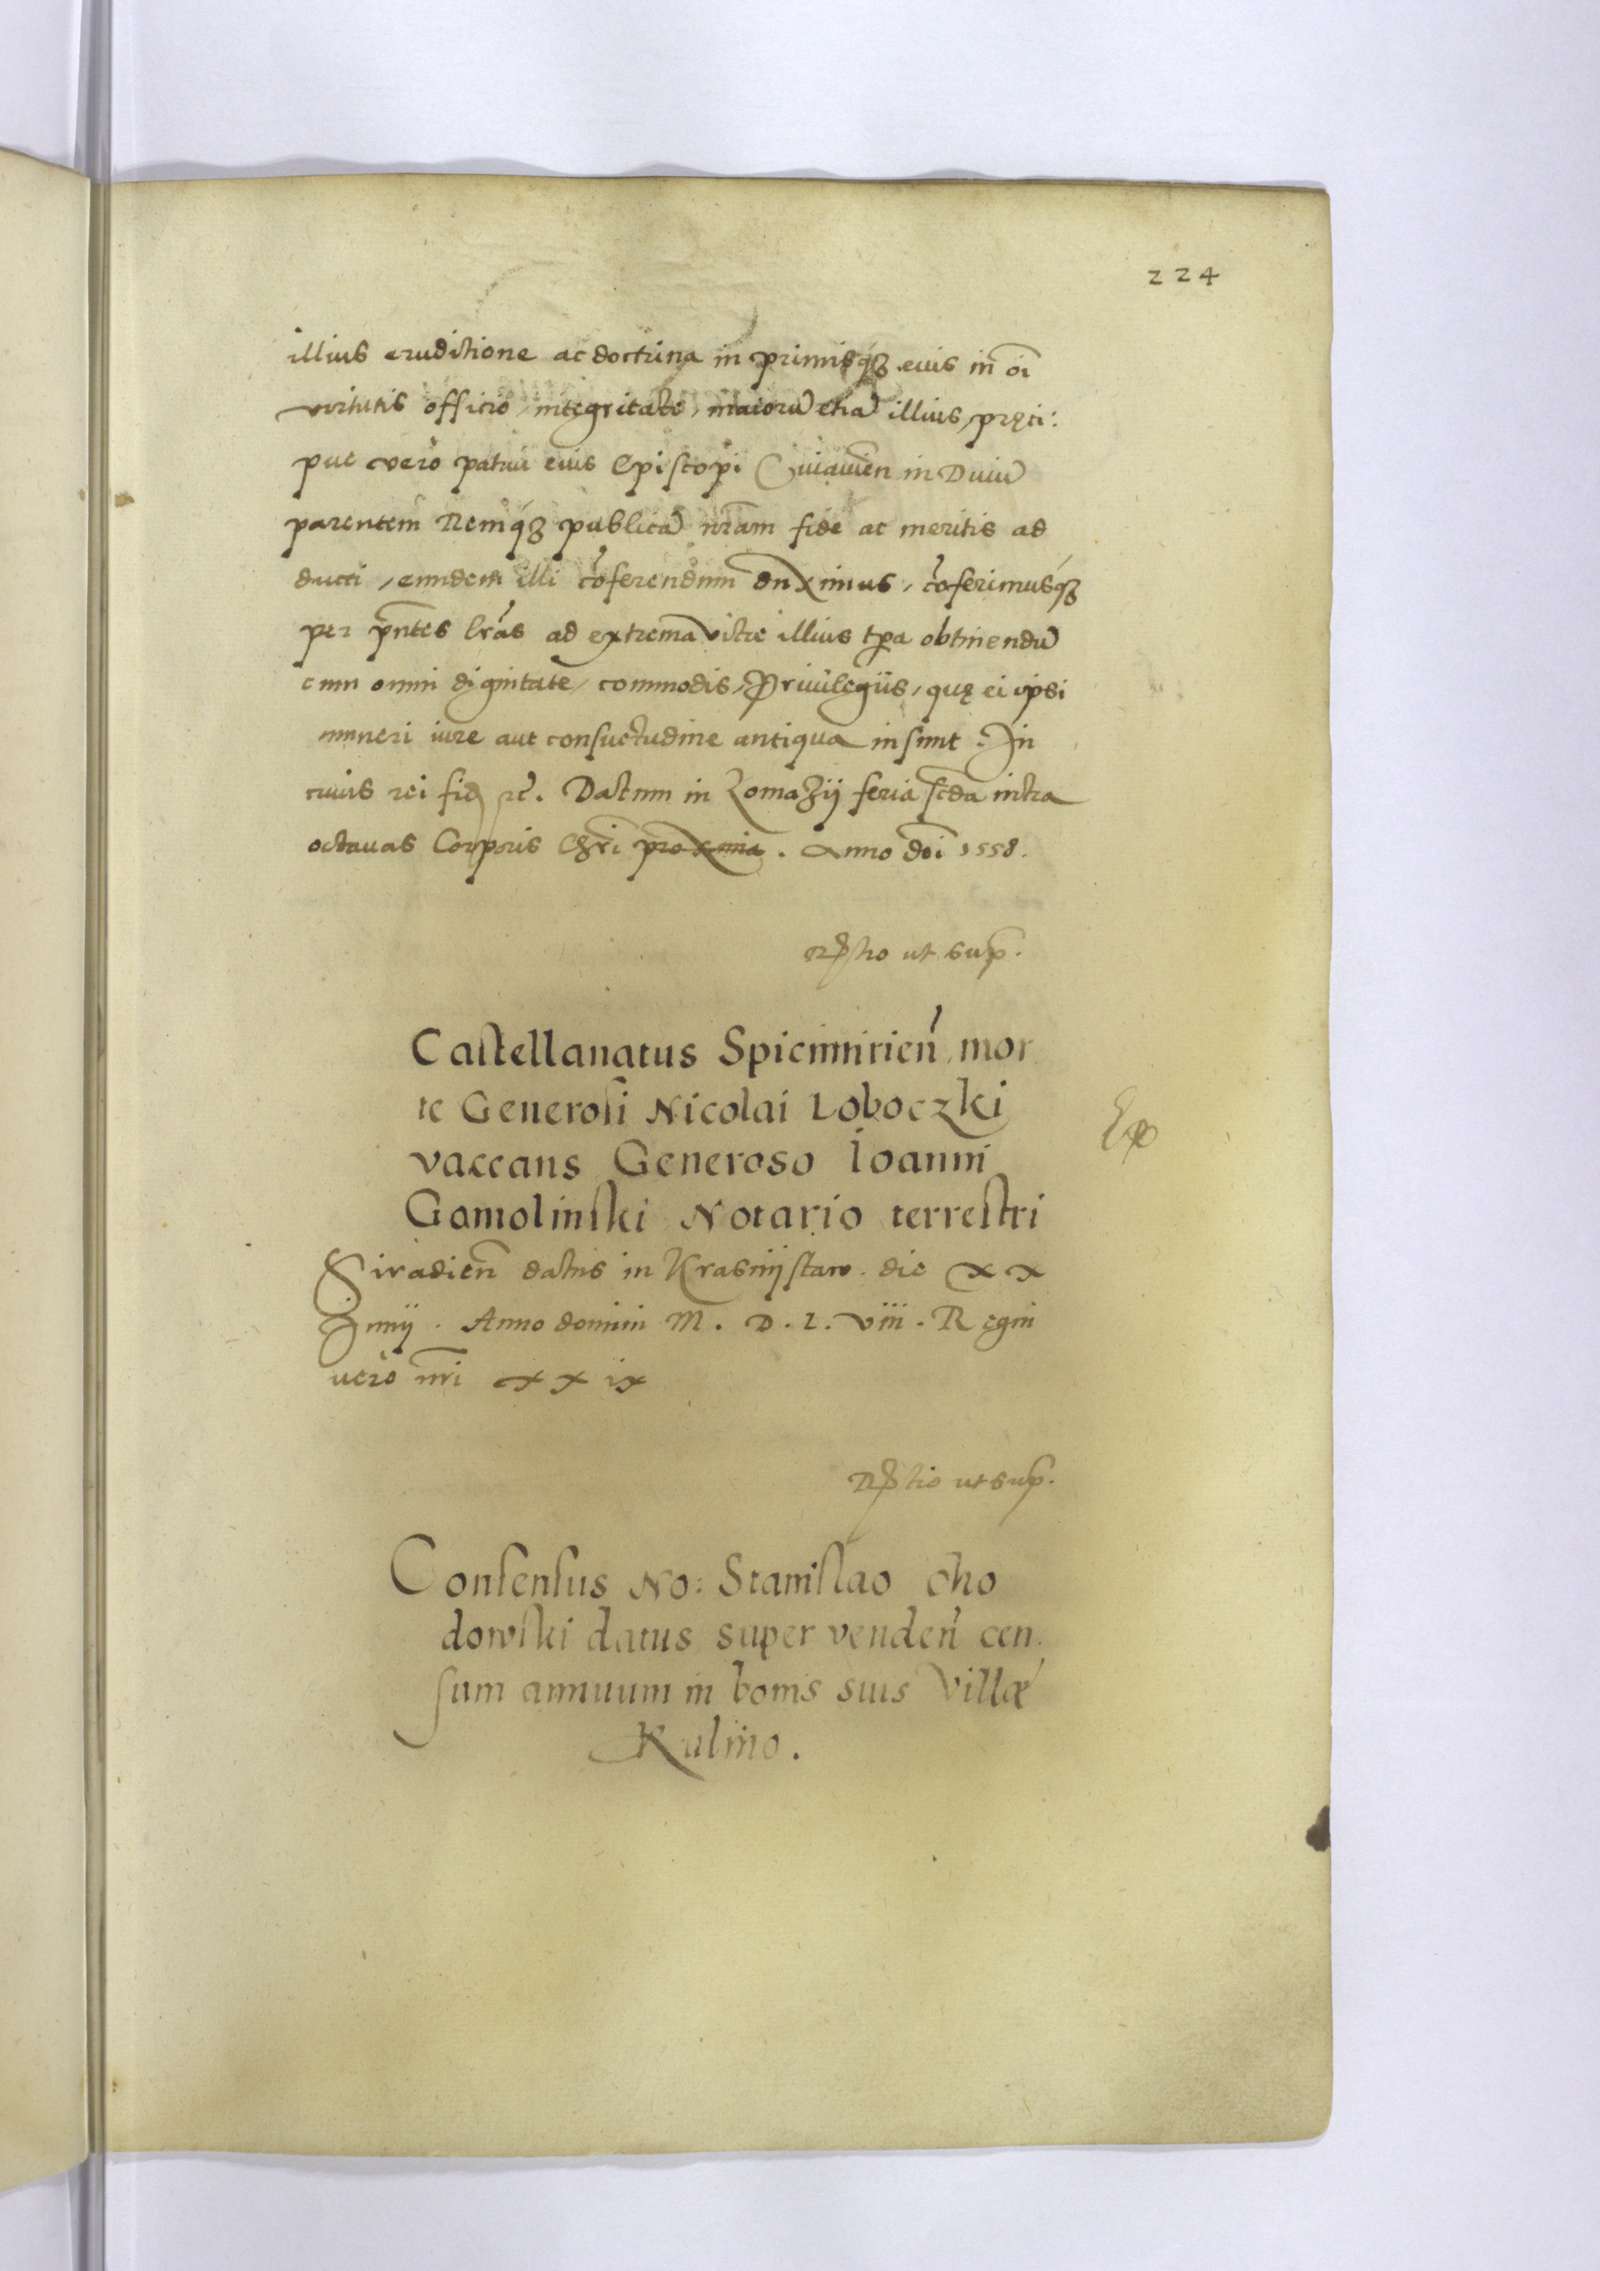 224
illius eruditione ac doctrina in primisq́ʒ eius in oĩ
virtutis officio, integritate, maiorũ etiã illius, pręci:
pue vero patrui eius Episcopi Cuiauieñ in Diuũ
parentem Remq́ʒ publicã nr̃am fide ac meritis ad
ducti, eundem illi cõferendum duximus, cõferimusq́ʒ
per p̃ntes lr̃as ad extrema vitae illius tp̃a obtinendũ
cum omni dignitate, commodis, Priuilegiis, quę ei ipsi
muneri iure aut consuetudine antiqua insunt. In
cuius rei fid̃ etc̃. Datum in Lomazÿ feria scd̃a intra
octauas Corporis Chr̃i proxima. Anno dñi 1558.
ut sup̃.
Castellanatus Spicimirieñ mor
te Generosi Nicolai Loboczki
vaccans Generoso Ioanni
Gamolinski Notario terrestri
Siradieñ datus in Krasnÿstaw. die xx
Junÿ. Anno domini M. D. L. viii. Regni
vero nr̃i xxix
ut sup̃.
Consensus No: Stanislao Cho
dowski datus super vendeñ cen
sum annuum in bonis suis Villæ
Kulino.